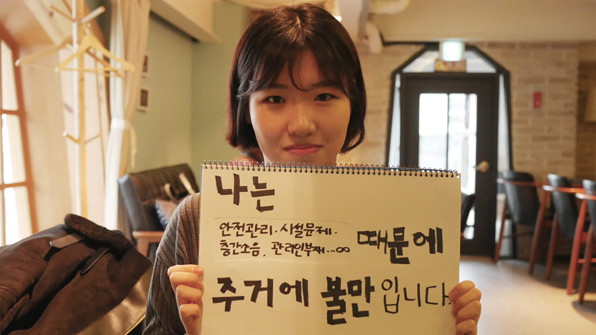 나는
안전관리·시설문제·
층간소음, 관리인부재...∞
때문에
주거에 불만입니다.